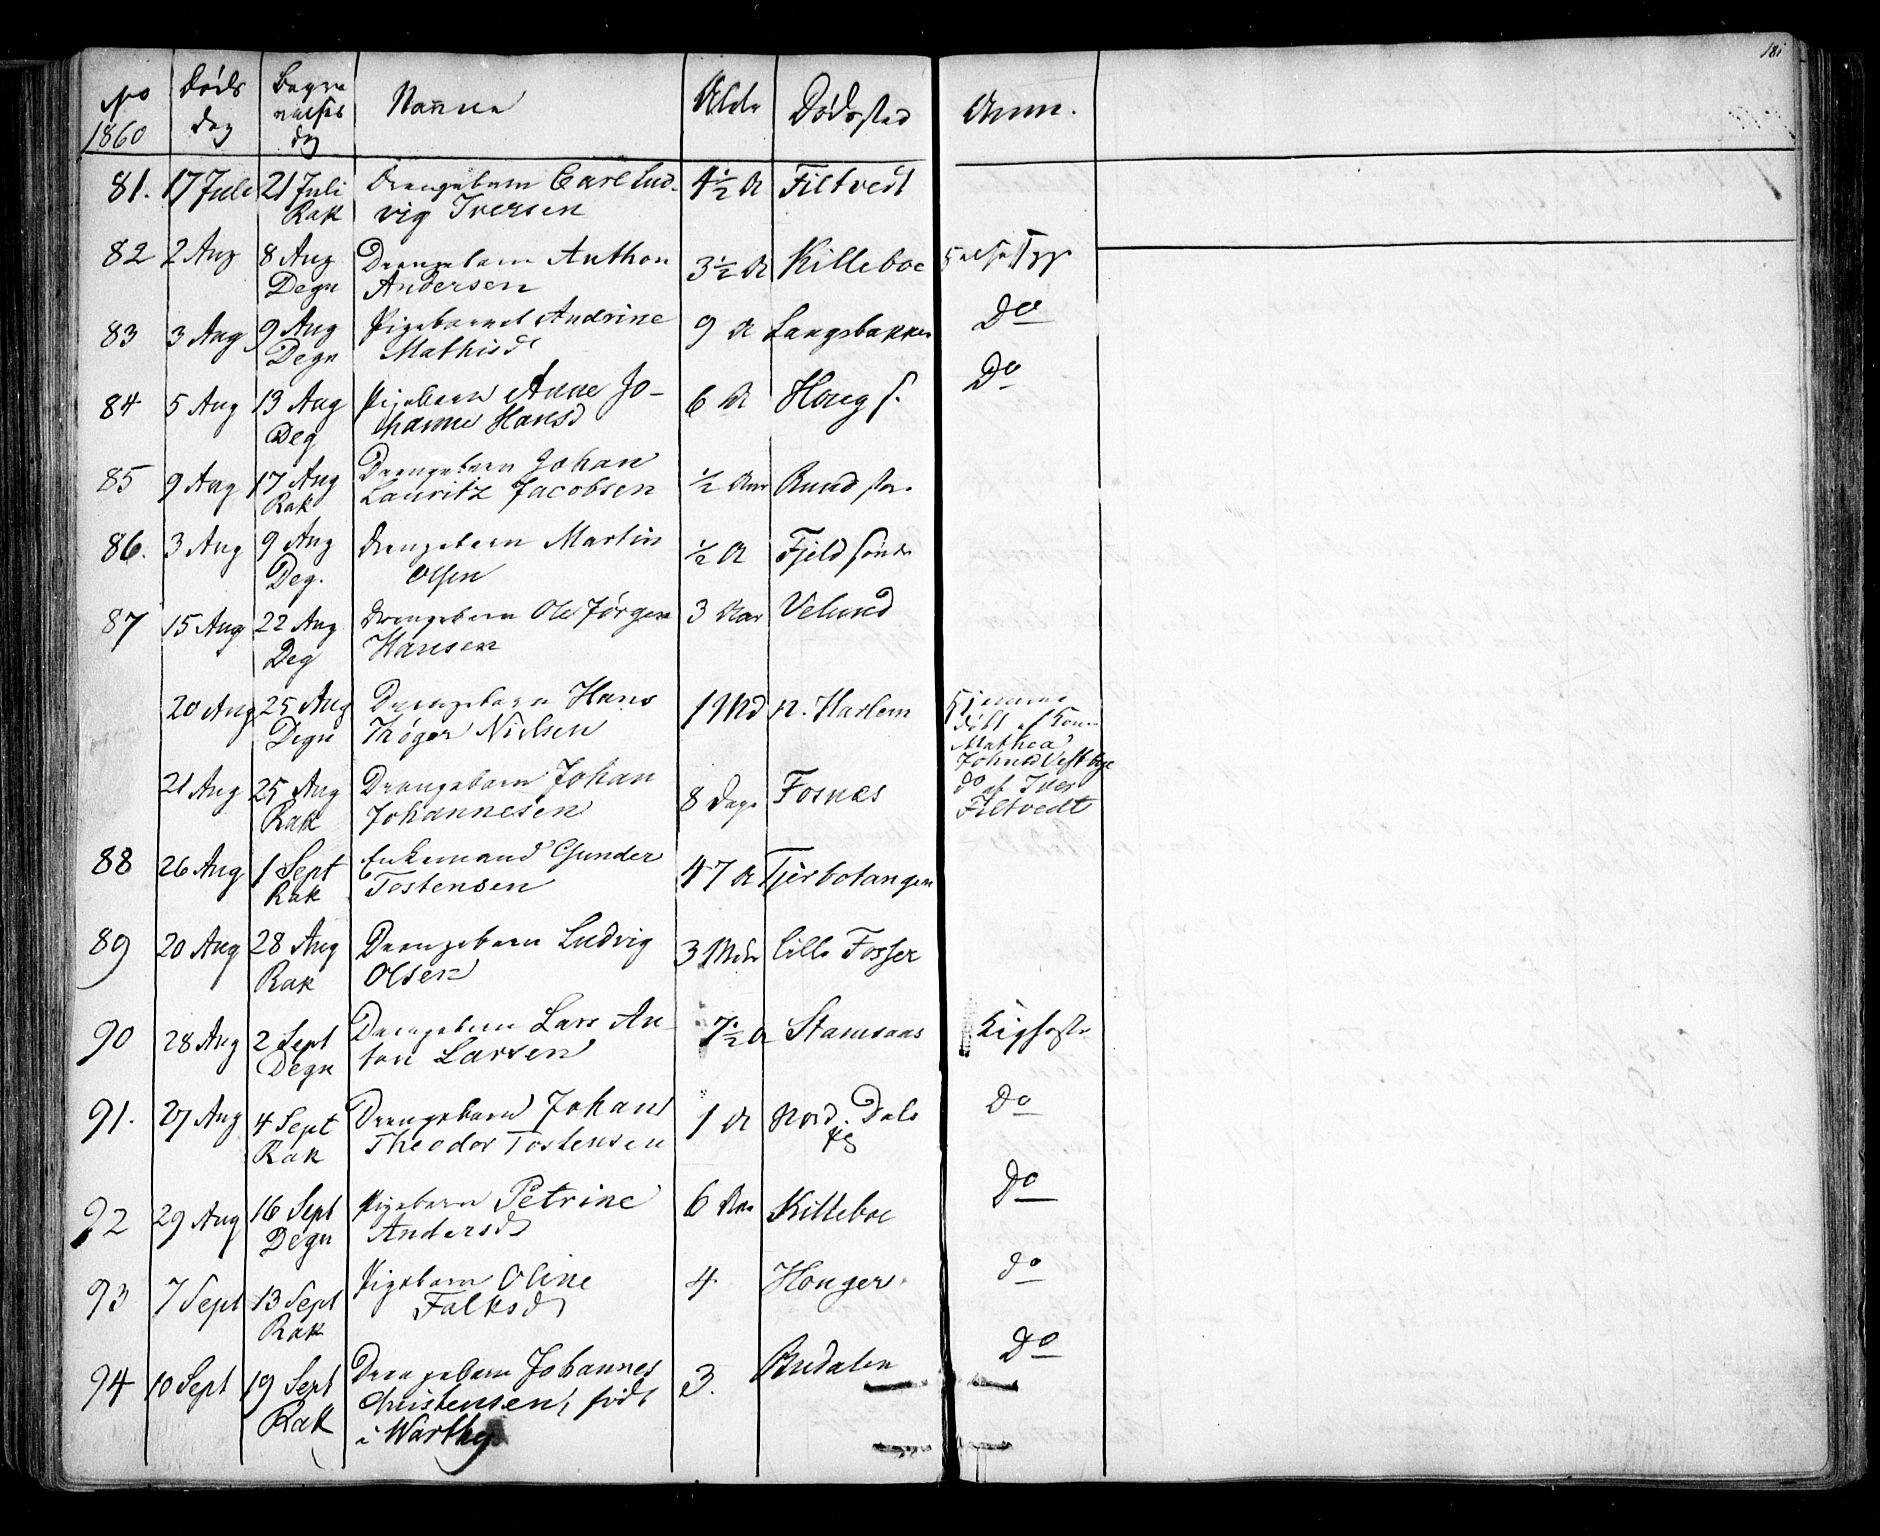 181
No 1860 Døds dag Begravelses dag Navne Alder Dødssted Anm.
81. 17 Juli 21 Juli Drengebarn Carl Lud- 4½ A Filtvedt
Rak vig Iversen
82 2 Aug 8 Aug Drengebarn Anthon 3½ A Killeboe
Degn Andersen
83 3 Aug 9 Aug Pigebarnet Andrine 9 A Langebakken Do
Degn Mathisd
84 5 Aug 13 Aug Pigebarn Anne Jo- 6 A Houg Do
Deg hanne Hansd
85 9 Aug 17 Aug Drengebarn Johan ½ Aar
Rak Lauritz Jacobsen
86. 3 Aug 9 Aug Drengebarn Martin ½ A Fjeld
Deg. Olsen
87 15 Aug 22 Aug Drengebarn Ole Jørgen 3 Aar Velund
Deg Hansen
20 Aug 25 Aug Drengebarn Hans 1 Md n. Harlem Hjemme
Degn Thøger Nielsen døbt af Kone
Mathea
Johnsd Vestbye
21 Aug 25 Aug Drengebarn Johan 8 Dage Fosnæs do af Iver
Rak Johannesen Filtvedt
88 26 Aug 1 Sept Enkemand Gunder 47 A Tjerbotangen
Rak Tostensen
89 20 Aug 28 Aug Drengebarn Ludvig 3 Mdr lille Fosser
Rak Olsen
90 28 Aug 2 Sept Drengebarn Lars An- 7½ A Stamsaas Kighoste
Degn ton Larsen
91. 27 Aug 4 Sept Drengebarn Johan 1 A Nord. Dals Do
Rak Theodor Tostensen
92 29 Aug 16 Sept Pigebarn Petrine 6 Aar Killeboe Do
Degn Andersd
93 7 Sept 13 Sept Pigebarn Oline 4 Houger do
Rak Falksd
94 10 Sept 19 Sept Drengebarn Johannes 3. Budalen Do
Rak Christensen, født
i Warthy